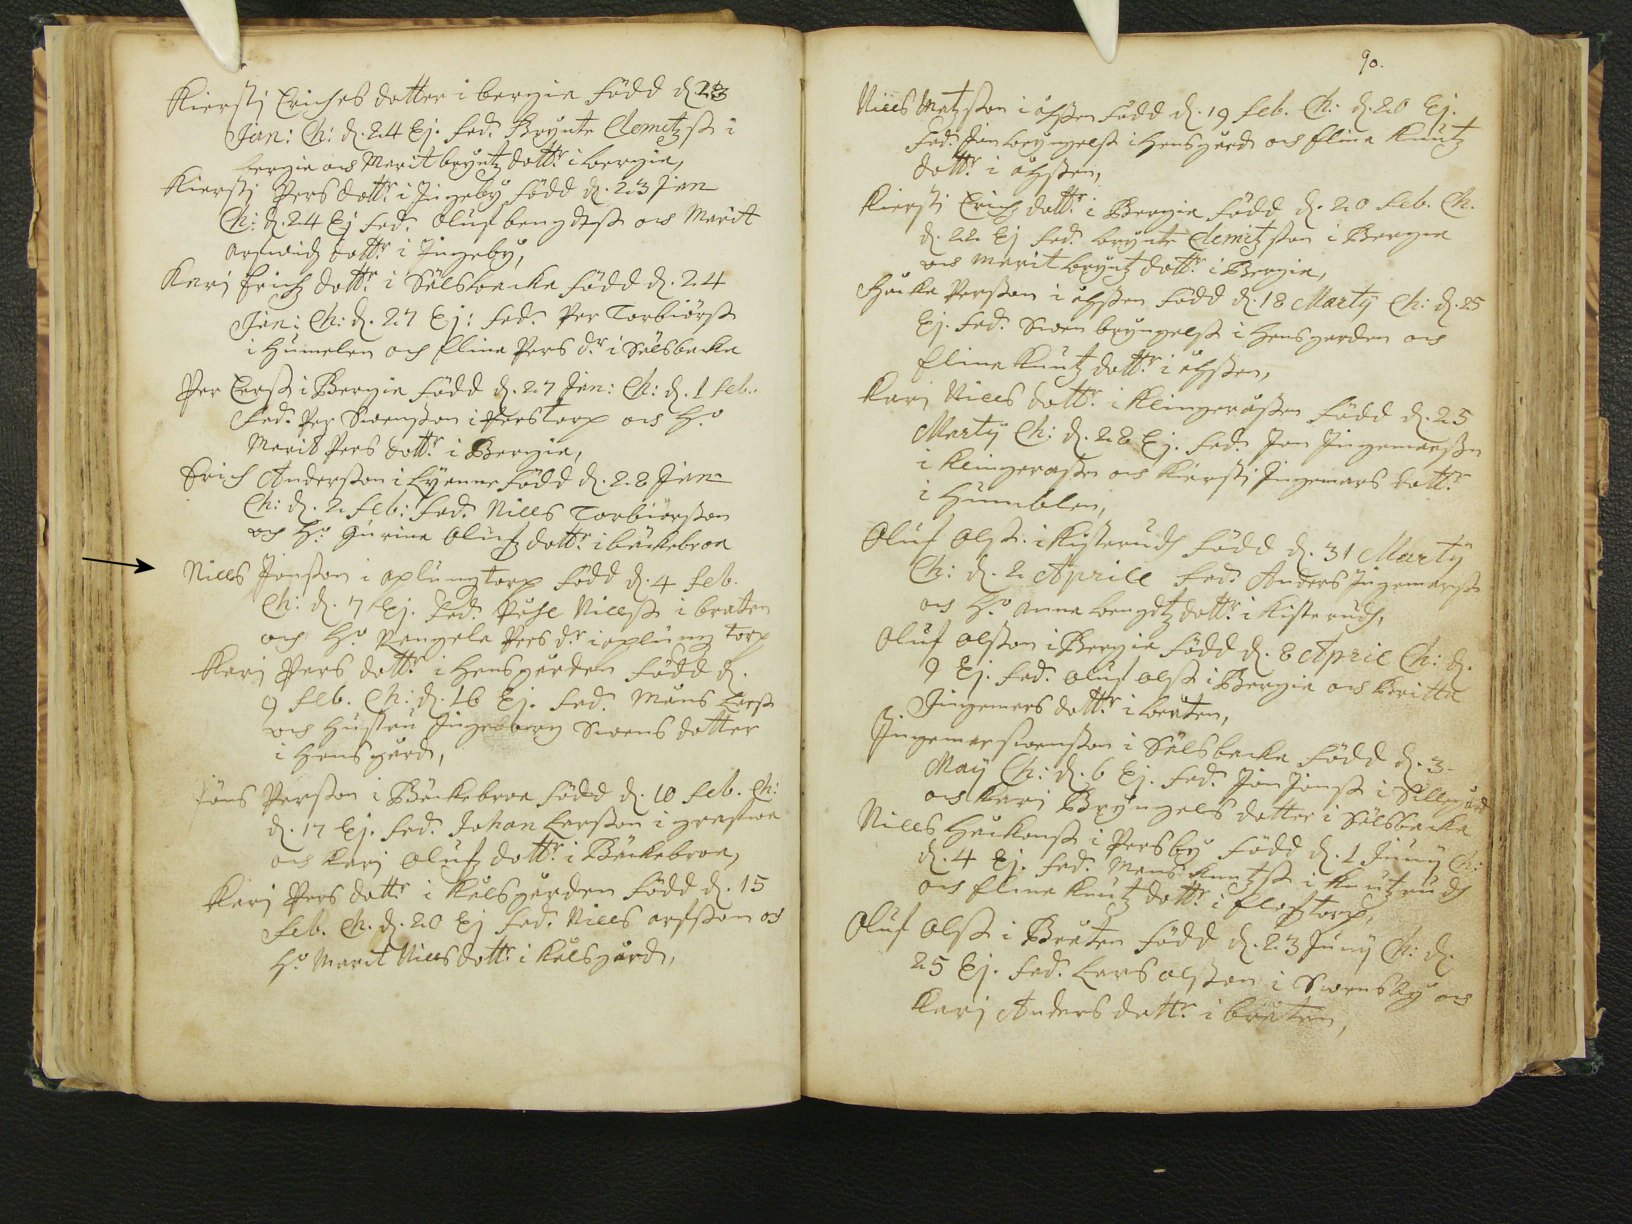 Kierstj Erichs dotter i bergie född d 23
Jan: Ch: d. 24 Ej. fad. Brynte Clemitzß i
bergie och Marit bryntz dottr i bergie,
Kiersti Pers dottr i Jngeby född d. 23 Jan
Ch: d. 24 Ej fad. Oluf bengdtß och Marit
dottr i Jngeby,
Karj Erichz dottr i Sälsbacka född d. 24
Jan: Ch: d. 27 Ej: fad. Per Torbiörß
i Humelen och Eline Pers dr i Sälsbacka
Per Larß i Bergie född d. 27 Jan: Ch: d. 1 feb.
Fad. Per Swenßon i Perstorp och Ho
Marit Pers dottr i Bergie,
Erich Anderßon i född d. 28 Jan
Ch: d. 2. feb: fad. Nills Torbiörßon
och Ho Gurine Olufz dottr i bäckebroa
Nills Jonßon i torp född d. 4 feb.
Ch: d. 7 Ej. fad. Nillß i braten
och Ho Pers dr i torp
Karj Pers dottr i Hensgården född d.
9 feb. Ch: d. 16 Ej. fad. Måns Larß
och Hustru Jngeborg Swens dotter
i Hensgård,
Jöns Perßon i Bäckebroa född d. 10 feb. Ch:
d. 17 Ej. fad. Johan Larßon i
och Karj Olufz dottr i Bäckebroa,
Karj Pers dottr i Kålsgården född d. 15
feb. Ch. d. 20 Ej fad. Nills och
Ho Marit Nills dottr i Kålsgård,
90.
Nills Matzßon i åhßen född d. 19 feb. Ch: d. 20 Ej.
fad. Jon bryngelß i Hensgård och Eline Knutz
dottr i åhßen,
Kiersti Erichz dottr i Bergie född d. 20 feb. Ch.
d. 22 Ej fad. brynte Clemitzßon i Bergie
och Marit bryntz dottr i Bergie,
Håcka Perßon i åhßen född d. 18 Martij Ch: d. 25
Ej. fad. Swen bryngelß i Hensgården och
Eline Knutz dottr i åhßen,
Karj Nills dottr i Klingeråßen född d. 25
Martij Ch: d. 28 Ej. fad. Jon Jngemarßon
i Klingeraßen och Kiersti Jngemars dottr
i Humblen,
Oluf Olß. i Kisterudh född d. 31 Martij
Ch: d. 2 Aprill fad. Anders Jngemarß
och Ho Anna bengdtz dottr i Kisterudh,
Oluf Olßon i Bergie född d. 8 April Ch: d.
9 Ej. fad. Oluf Olß i Bergie och Britta
Jngemers dottr i bråten,
Jngemar Swenßon i Sälsbacka född d. 3
Maij Ch: d. 6 Ej. fad. Jon Jonß i Sillegård
och Karj Bryngels dotter i Sälsbacka
Nills Håckonß i Persby född d. 1 Junij Ch:
d. 4 Ej. fad. Måns Knutß i Knutrudh
och Eline Knutz dottr i
Oluf Olß i Bråten född d. 23 Junij Ch: d.
25 Ej. fad. Lars Olßon i Swensby och
Karj Anders dottr i bråten,